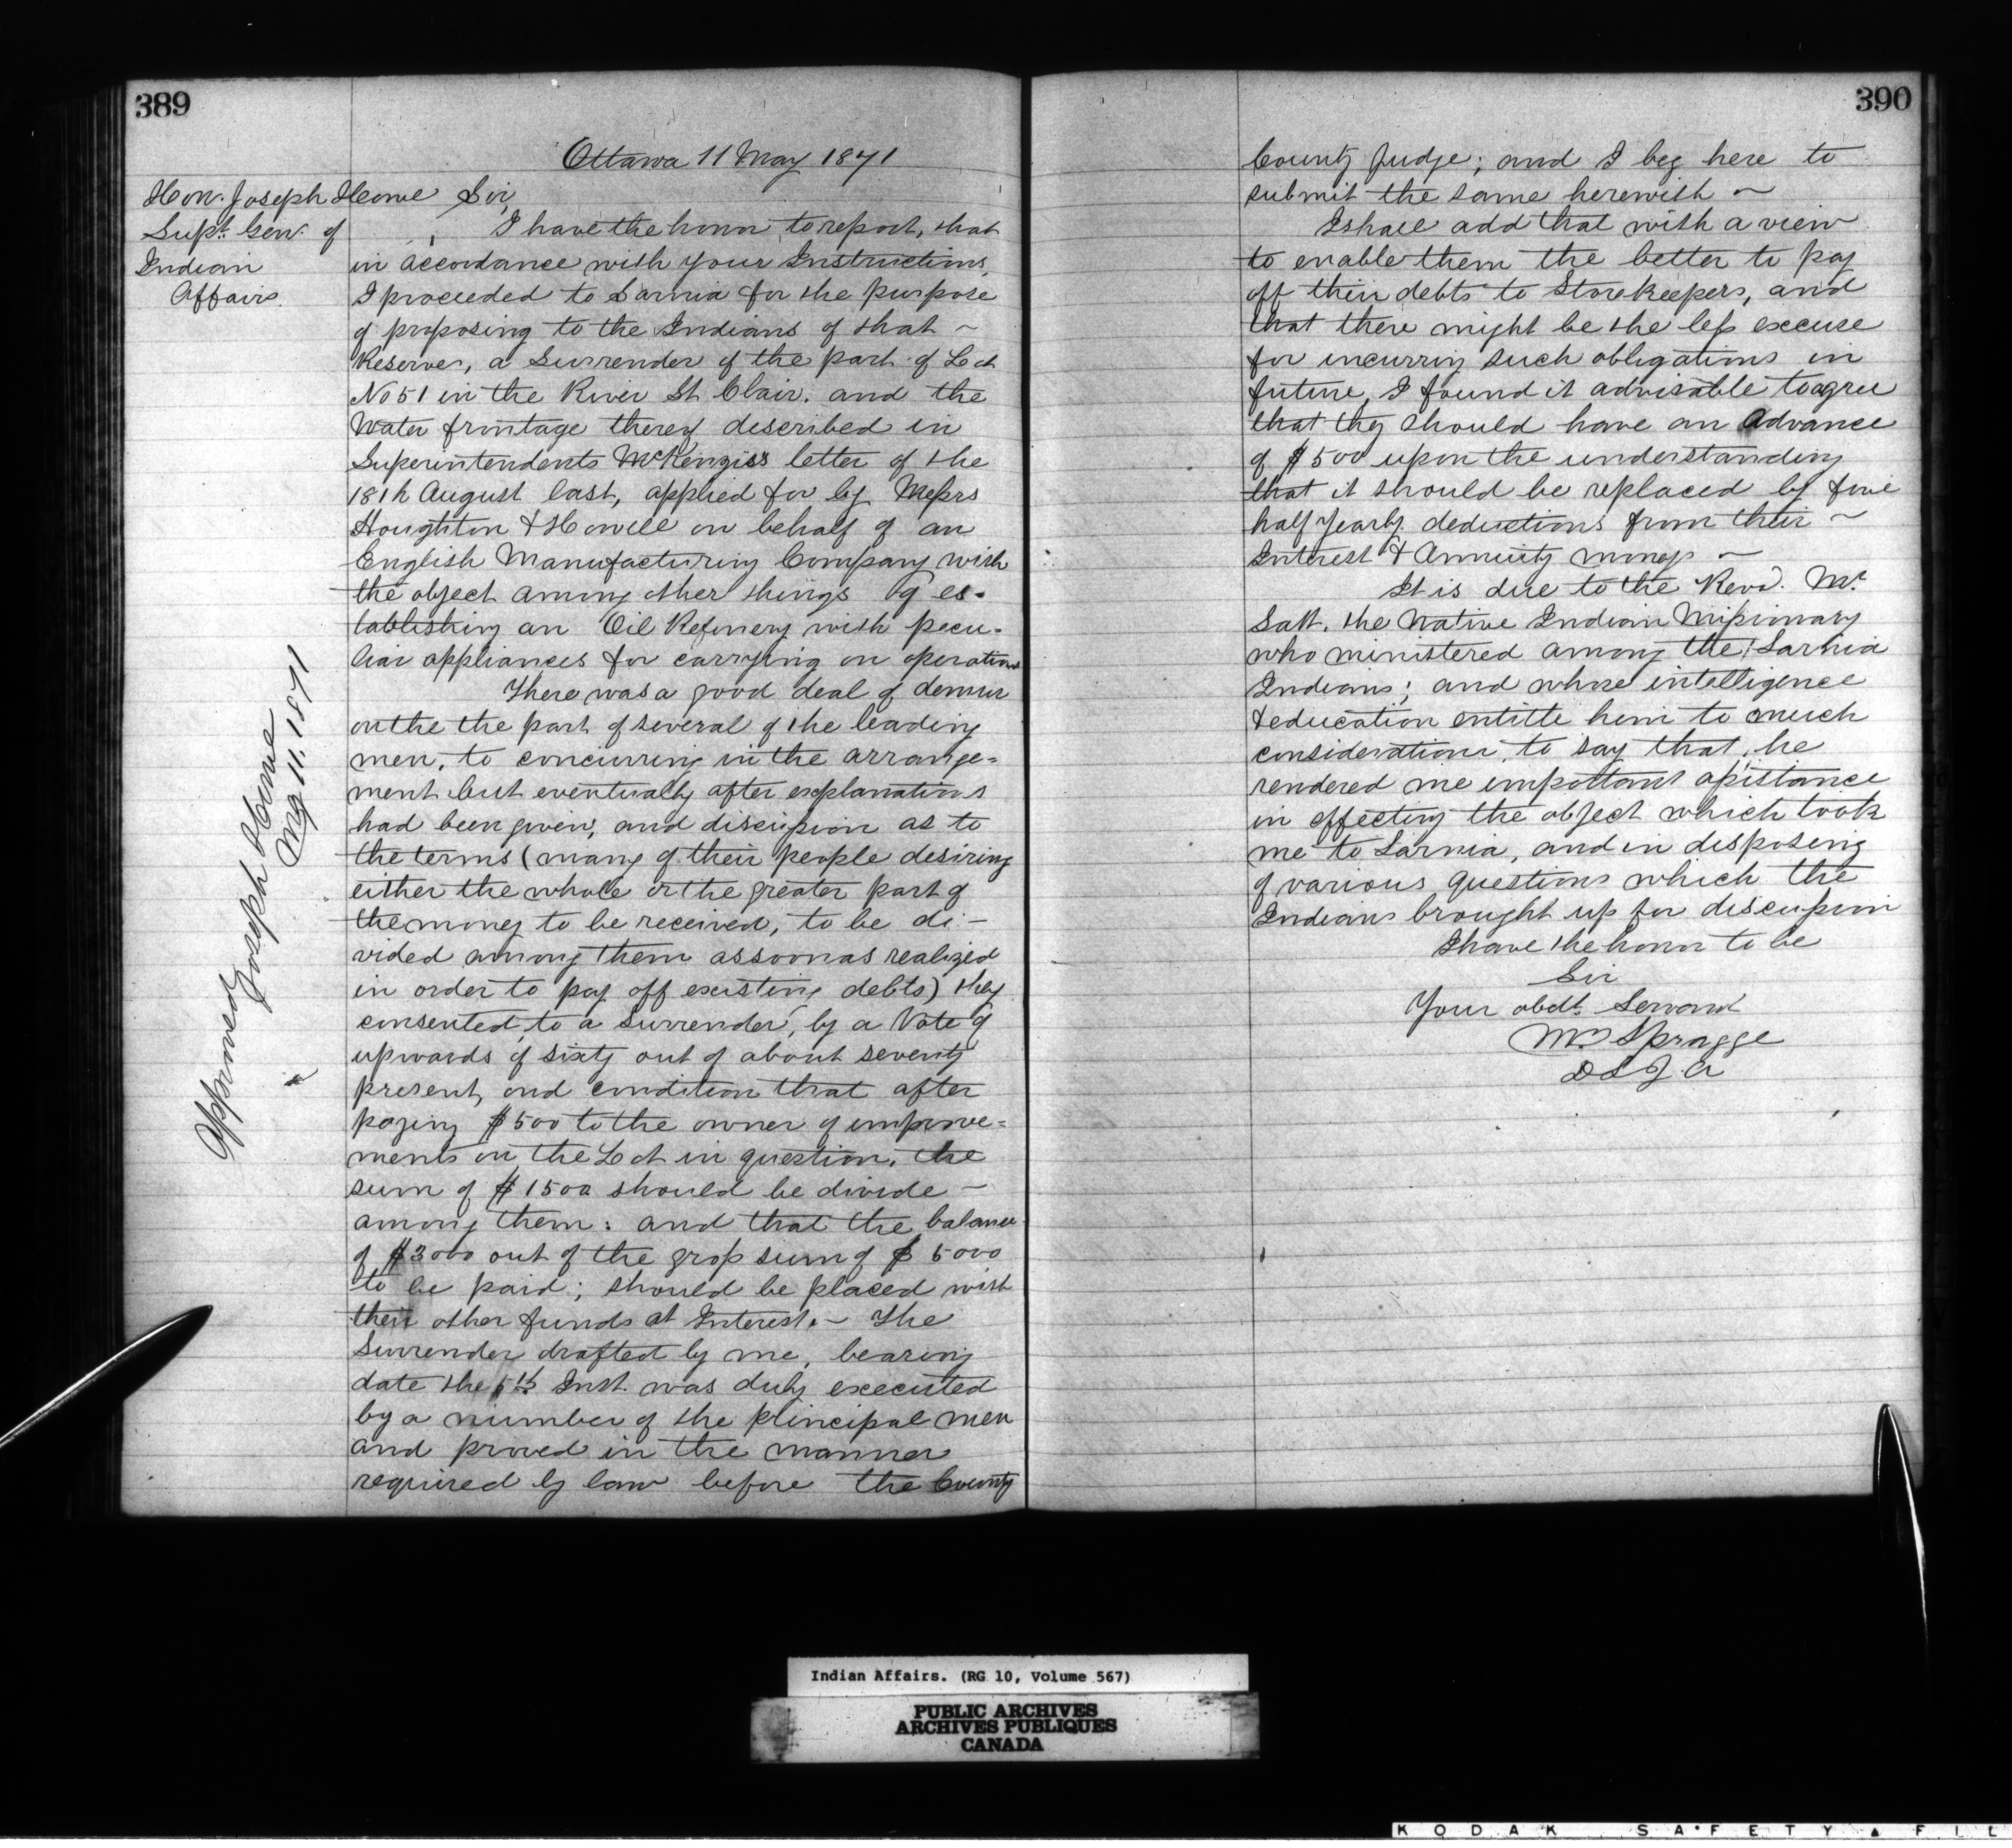 389
Ottawa 11 May 1871
Hon. Joseph Howe
Supt. Gen. of
Indian
Affairs.
Sir,
I have the honor to report, that
in accordance with your Instructions,
I proceeded to Sarnia for the purpose
of proposing to the Indians of that ~
Reserve, a Surrender of the part of Lot
No 51 in the River St. Clair. and the
Water frontage thereof described in
Superintendents McKenzies letter of the
18th August last, applied for by Messrs
Houghton & Howell on behalf of an
English Manufacturing Company with
the object among other things of es-
tablishing an Oil Refinery with pecu-
liar appliances for carrying on operations
There was a good deal of demur
on the the part of several of the leading
men, to concurring in the arrange=
ment but eventually after explanations
had been given, and discussion as to
the terms (many of their people desiring
either the whole or the greater part of
the money to be received, to be di-
vided among them as soon as realized
in order to pay off existing debts) they
consented to a Surrender, by a Vote of
upwards of sixty out of about seventy
present, ond condition that after
paying $500 to the owner of improve=
ments on the Lot in question, the
sum of $1500 should be divide ~
among them: and that the balance
of $3000 out of the gross sum of $5000
to be paid; should be placed with
their other funds at Interest. ~ The
Surrender drafted by me, bearing
date the 5th Inst. was duly executed
by a number of the principal men
and proved in the manner
required by law before the County
Approved
Joseph Howe
May 11. 1871
390
County Judge; and I beg here to
submit the same herewith ~
I shall add that with a view
to enable them the better to pay
off their debts to Storekeepers, and
that there might be the less excuse
for incurring such obligations in
future, I found it advisable to agree
that they should have an Advance
of $500 upon the understanding
that it should be replaced by five
half yearly deductions from their ~
Interest & Annuity money ~
It is due to the Revd. Mr.
Salt, the Native Indian Missionary
who ministered among the Sarnia
Indians; and whose intelligence
& education entitle him to much
consideration, to say that, he
rendered me important assistance
in effecting the object which took
me to Sarnia, and in disposing
of various questions which the
Indians brought up for discussion
I have the honor to be
Sir
Your obdt. Servant
Wm Spragge
D S I. A
Indian Affairs. (RG 10, Volume 567)
PUBLIC ARCHIVES
ARCHIVES PUBLIQUES
CANADA
KODAK SAFETY ▲ FIL